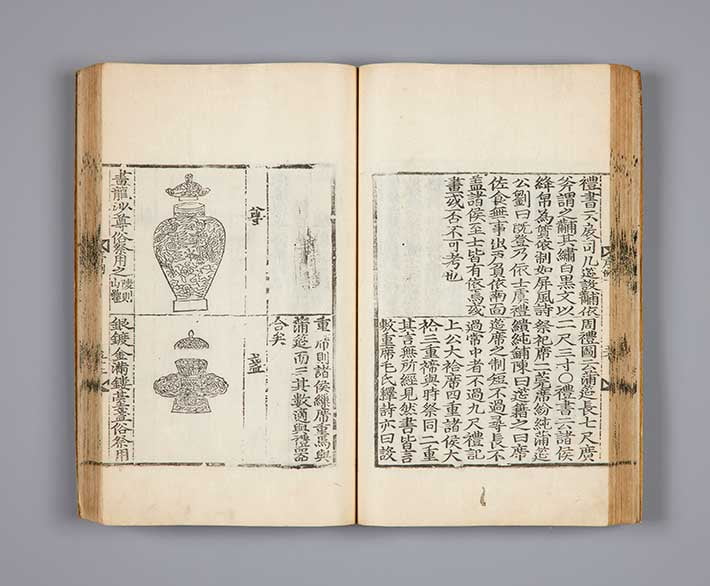 禮書云司几筵設黼依
斧謂之黼其繡白黑文以
絳帛為質依制如屏風詩
公劉曰旣登乃依士虞禮
佐食無事出戶負依南面
盖諸侯至士皆有依焉或
畫或否不可考也
周禮圖云蒲筵長七尺廣
二尺三寸〇禮書云諸侯
祭祀席二莞席紛純蒲筵
繢純鋪陳曰筵藉之曰席
筵席之制短不過尋長不
過常中者不過九尺禮記
上公大祫席四重諸侯大
祫三重禘與時祭同二重
其言無所經見然書皆言
敷重席毛氏繹詩亦曰設
重席則諸侯繅席重焉與
蒲筵而三其數適與禮器
合矣
尊
畫龍沙尊俗祭用之陵則山罍
盞
銀鍍金臺盞俗祭用